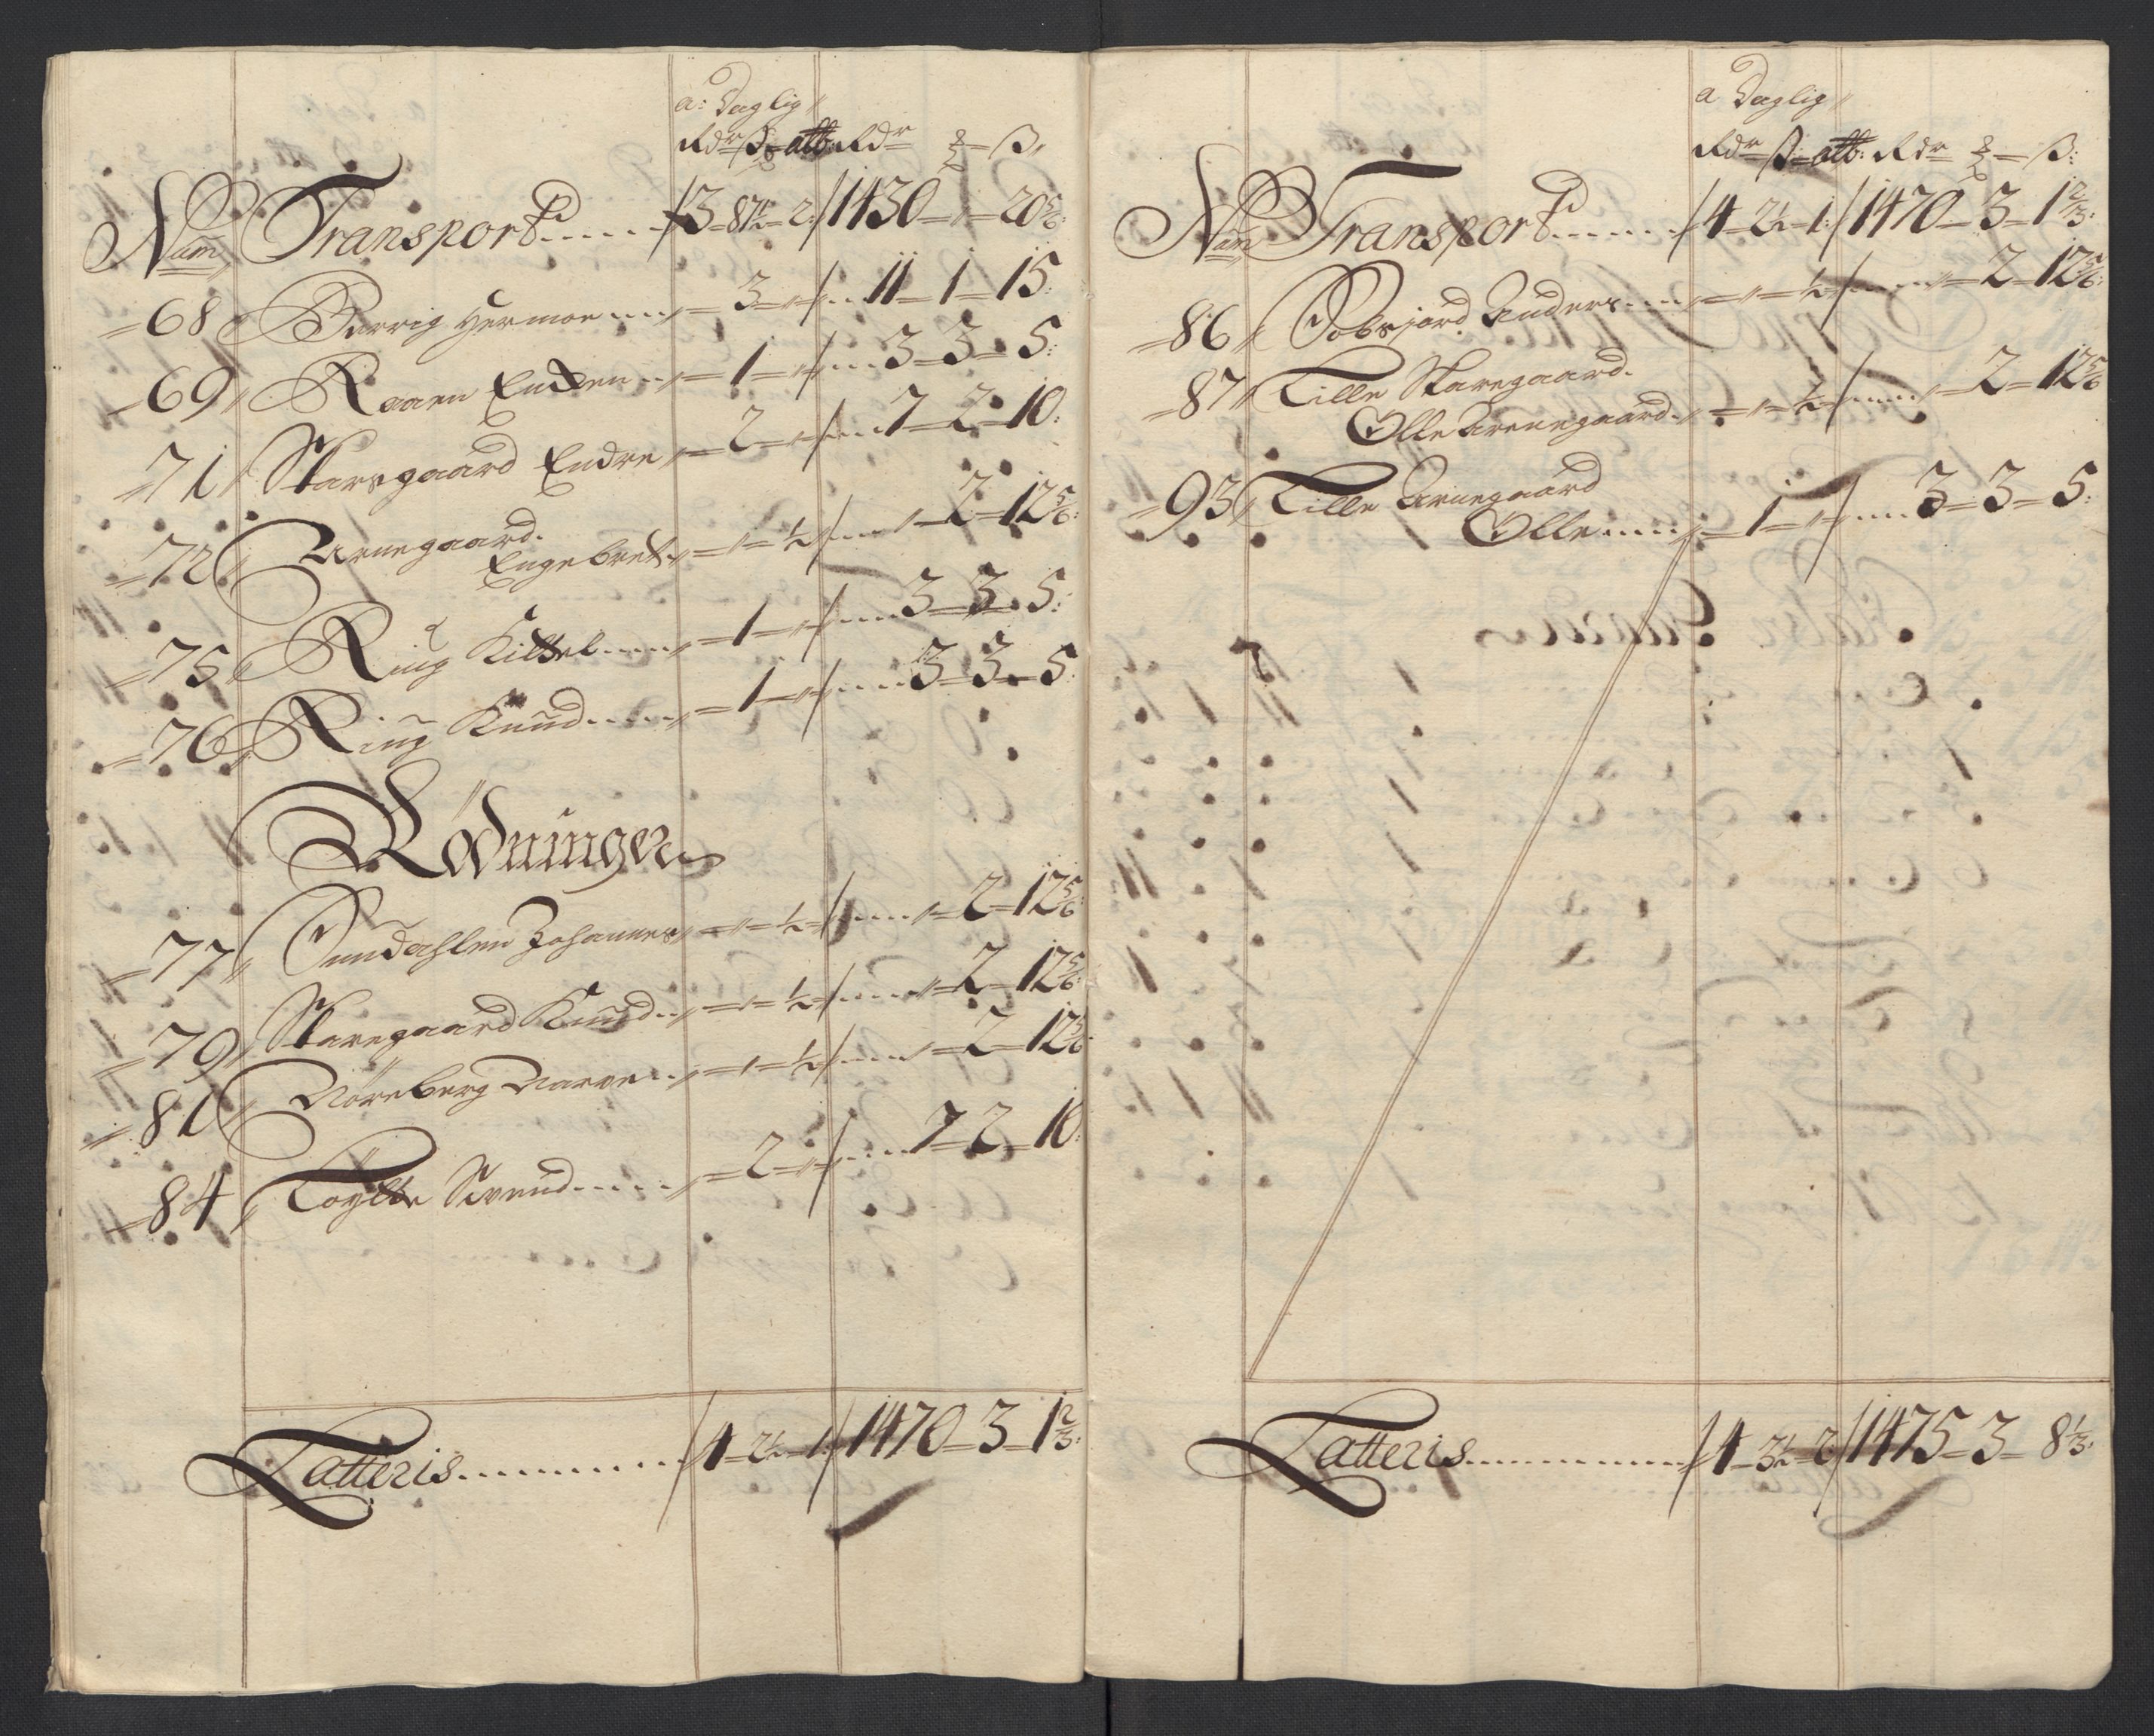 a: Daglig
Rdr ß alb: Rdr ß
Num Transport ...... 3 – 87½ – 2 / 1430 – 1 – 20 5/6:
68 Hermoe .... 3 – „ / .. 11 – 1 – 15:
69 Raaen Enden .. 1 – „ / ... 3 – 3 – 5:
71 Skarsgaard Endre 2 – „ / ... 7 – 2 – 10:
72 Arnegaard.
Engebret „ – ½ / .... „ – 2 – 12 5/6:
75 Ring Kittel .... 1 – „ / .... 3 – 3 – 5:
76 Ring Knud ..... 1 – „ / .... 3 – 3 – 5:
Rödninger
77 Sundahlen Johannes „ – ½ / .... „ – 2 – 12 5/6
79 Skaregaard Knud .. „ – ½ / .... „ – 2 – 12 5/6:
81 Noreberg Narve .. „ – ½ / .... „ – 2 – 12 5/6
84 Svend .... 2 – „ / .... 7 – 2 – 10:
Latteris .......... 4 – 2½ – 1 / 1470 – 3 – 1 2/3:
a Daglig
Rdr ß alb: Rdr ß:
Num Transport ...... 4 – 2½ – 1 / 1470 – 3 – 1 2/3:
86 Anders .... „ – ½ / .... „ – 2 – 12 5/6:
87 Lille Skaregaard.
Olle Arnegaard. „ – ½ / .... „ – 2 – 12 5/6
93 Lille Arnegaard
Olle .... 1 – „ / .... 3 – 3 – 5:
Latteris .......... 4 – 3½ – 2 / 1475 – 3 – 8 1/3: